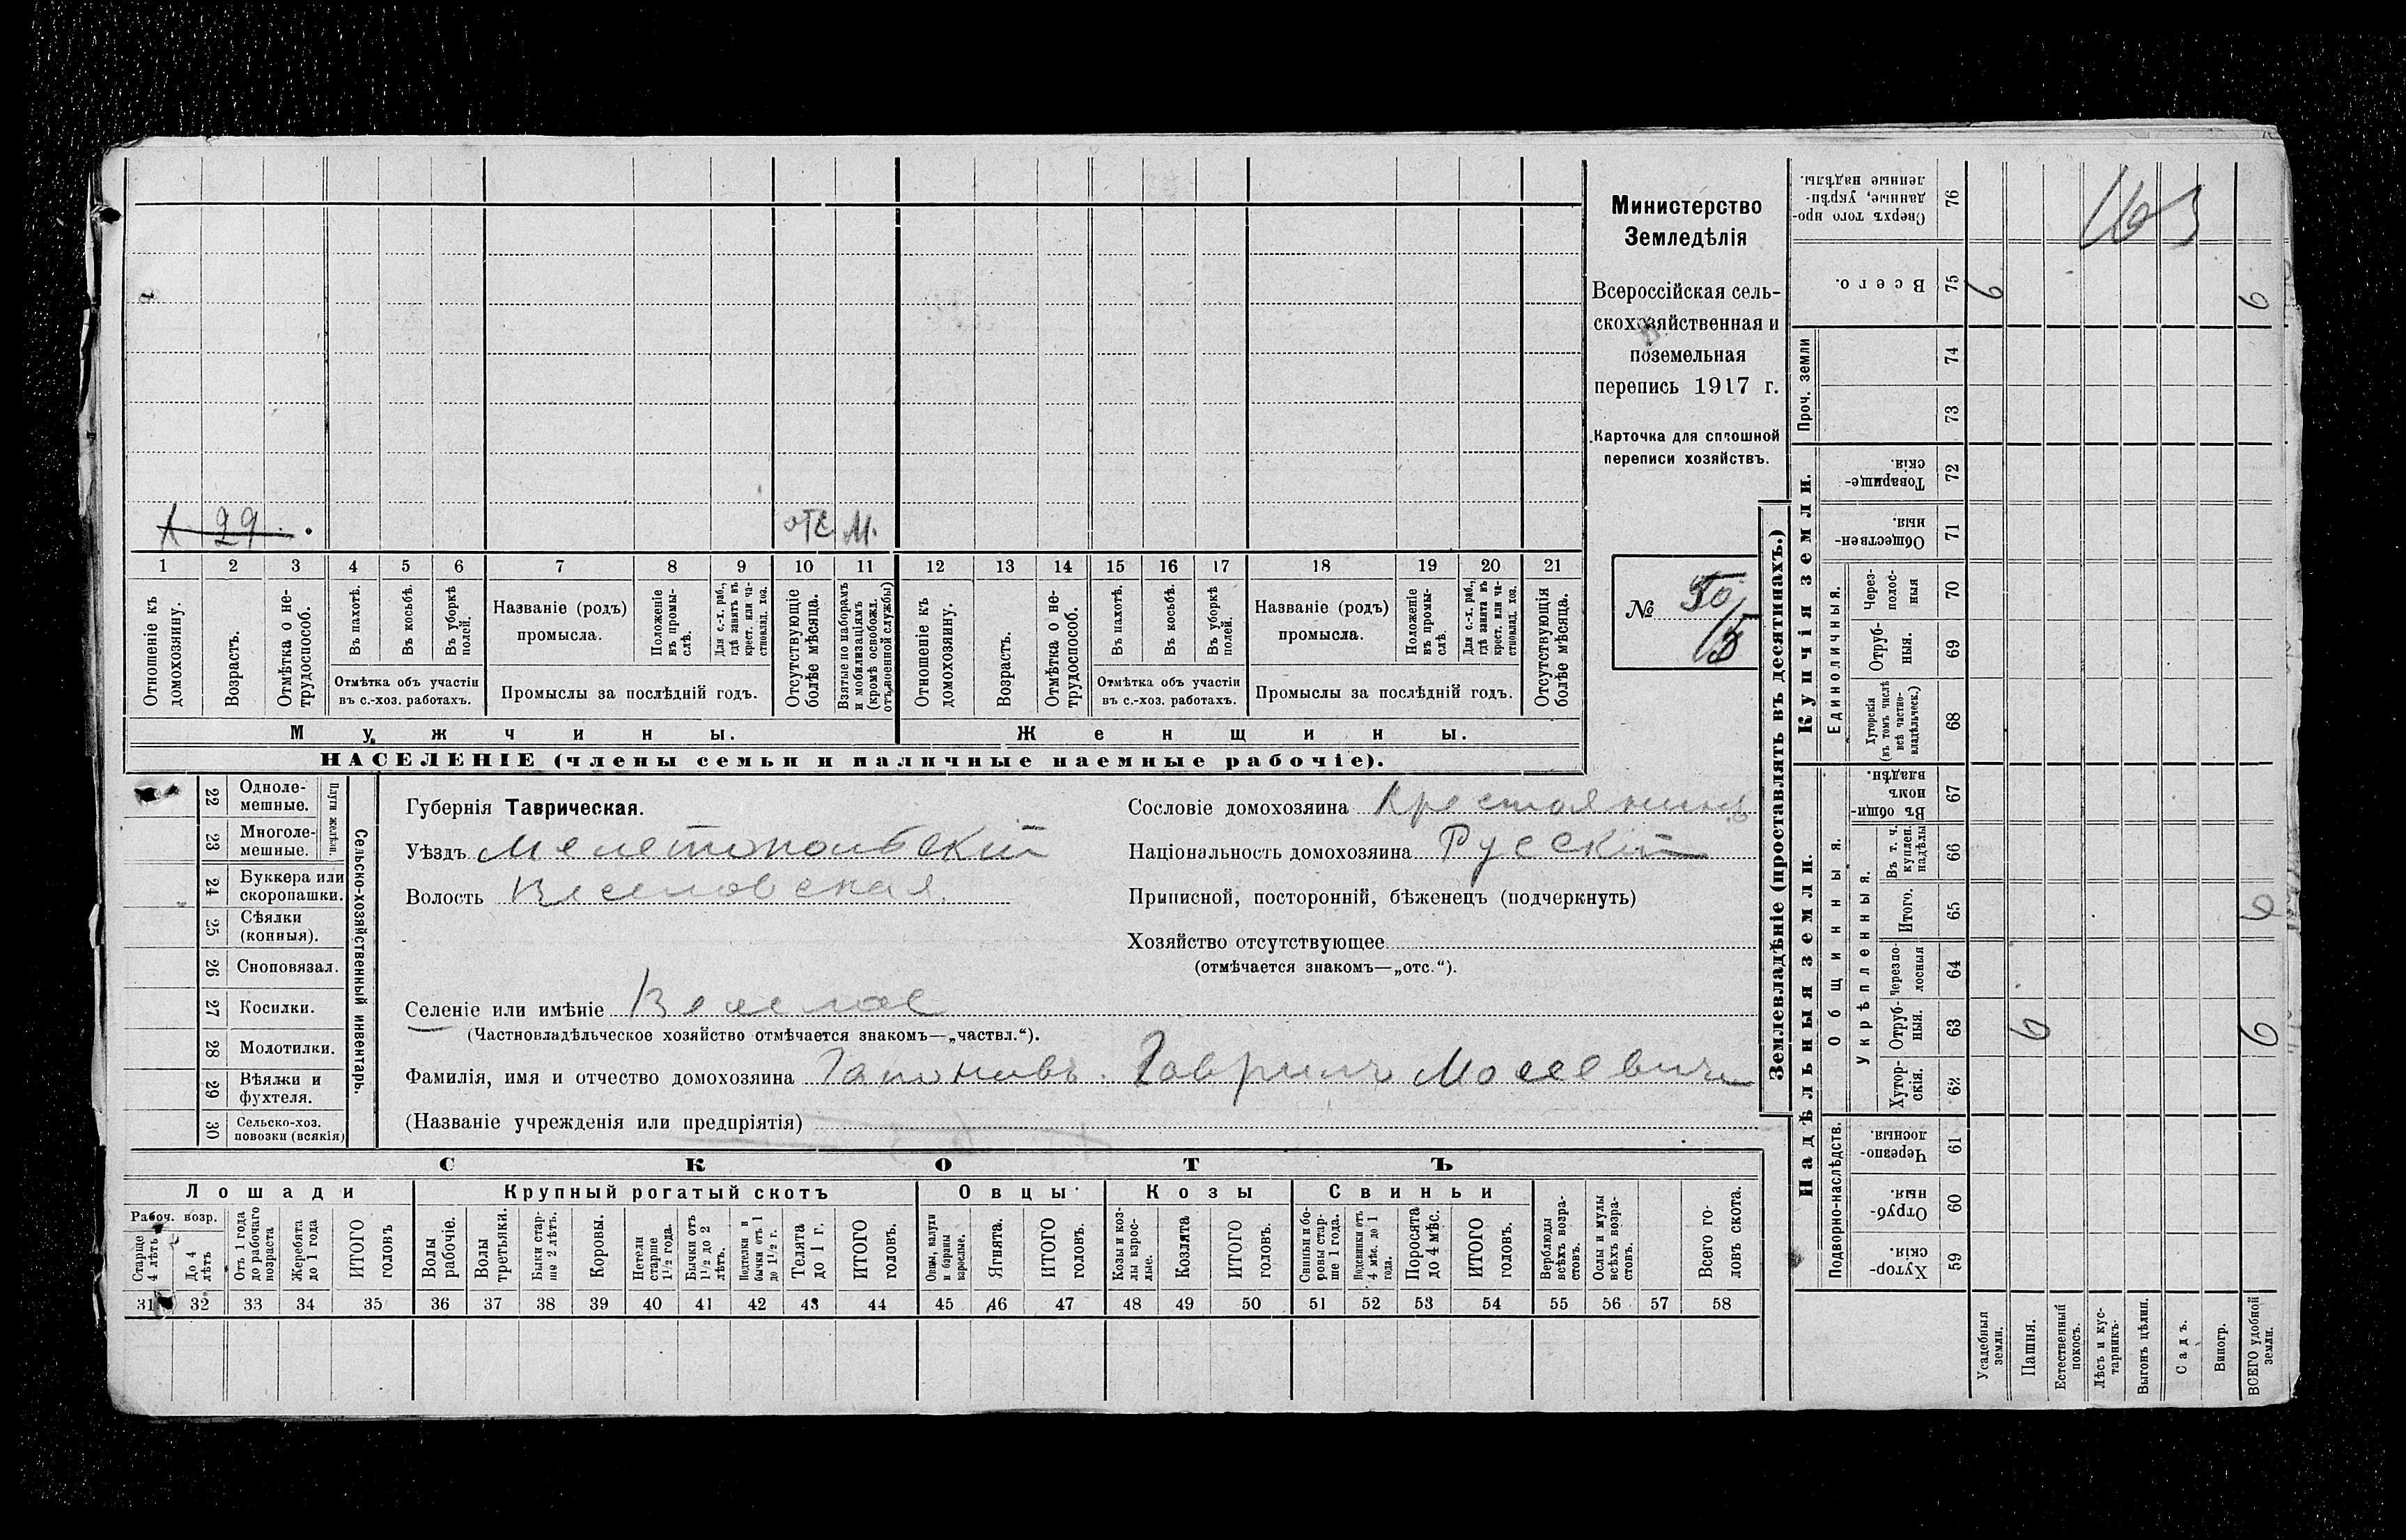 Министерство
Земледѣлія
Всероссійская сель-
скохозяйственная и
поземельная
перепись 1917 г.
Карточка для сплошной
переписи хозяйствъ.
№ 50
15
29
отс. М.
1 2 3 4 5 6 7 8 9 10 11 12 13 14 15 16 17 18 19 20 21
Отношеніе къ домохозяину.
Возрастъ.
Отмѣтка о не-трудоспособ.
Въ пахотѣ.
Въ косьбѣ.
Въ уборкѣ полей.
Отмѣтка объ участіи
въ с.-хоз. работахъ.
Названіе (родъ)
промысла.
Положеніе въ промы-слѣ.
Для с.-х. раб., гдѣ занятъ въ крест. или ча-стновлад. хоз.
Промыслы за послѣдній годъ.
Отсутствующіе болѣе мѣсяца.
Взятые по наборамъ и мобилизаціямъ (кромѣ освобожд. отъ военной службы)
Отношеніе къ домохозяину.
Возрастъ.
Отмѣтка о не-трудоспособ.
Въ пахотѣ.
Въ косьбѣ.
Въ уборкѣ полей.
Отмѣтка объ участіи
въ с.-хоз. работахъ.
Названіе (родъ)
промысла.
Положеніе въ промы-слѣ.
Для с.-х. раб., гдѣ занята въ крест. или ча-стновлад. хоз.
Промыслы за послѣдній годъ.
Отсутствующія болѣе мѣсяца.
Мужчины. Женщины.
НАСЕЛЕНІЕ (члены семьи и наличные наемные рабочіе).
22 Одноле-мешные.
23 Многоле-мешные.
Плуги желѣзн.
24 Буккера или скоропашки.
25 Сѣялки (конныя).
26 Сноповязал.
27 Косилки.
28 Молотилки.
29 Вѣялки и фухтеля.
30 Сельско-хоз. повозки (всякія)
Сельско-хозяйственный инвентарь.
Губернія Таврическая.
Уѣздъ Мелетопольскій
Волость Веселовская
Селеніе или имѣніе Веселое
(Частновладѣльческое хозяйство отмѣчается знакомъ—„частвл.“).
Фамилія, имя и отчество домохозяина Гапоновъ. Гаврилъ Мосеевичъ
(Названіе учрежденія или предпріятія)
Сословіе домохозяина Крестоянинъ
Національность домохозяина Русскій
Приписной, посторонній, бѣженецъ (подчеркнуть)
Хозяйство отсутствующее
(отмѣчается знакомъ—„отс.“).
СКОТЪ
Лошади
Рабоч. возр.
Старше 4 лѣтъ
До 4 лѣтъ
Отъ 1 года до рабочаго возраста
Жеребята до 1 года
ИТОГО головъ
Крупный рогатый скотъ
Волы рабочіе.
Волы третьяки.
Быки стар-ше 2 лѣтъ.
Коровы.
Нетели старше 1½ года.
Бычки отъ 1½ до 2 лѣтъ.
Подтелки и бычки отъ 1 до 1½ г.
Телята до 1 г.
ИТОГО головъ.
Овцы
Овцы, валухи и бараны взрослые.
Ягнята.
ИТОГО головъ.
Козы
Козы и коз-лы взрос-лые.
Козлята
ИТОГО головъ.
Свиньи
Свиньи и бо-ровы стар-ше 1 года.
Подсвинки отъ 4 мѣс. до 1 года.
Поросята до 4 мѣс.
ИТОГО головъ.
Верблюды всѣхъ возра-стовъ.
Ослы и мулы всѣхъ возра-стовъ.
Всего го-ловъ скота.
31 32 33 34 35 36 37 38 39 40 41 42 43 44 45 46 47 48 49 50 51 52 53 54 55 56 57 58
Землевладѣніе (проставлять въ десятинахъ.)
Надѣльныя земли.
Купчія земли.
Подворно-наслѣдств.
Хутор-скія. 59
Отруб-ныя. 60
Черезпо-лосныя. 61
Общинныя.
Укрѣпленныя.
Хутор-скія. 62
Отруб-ныя. 63
Черезпо-лосныя 64
Итого. 65
Въ т. ч. куплен. надѣлы 66
Въ общи-номъ владѣн. 67
Единоличныя.
Хуторскія (въ томъ числѣ всѣ частно-владѣльческ.) 68
Отруб-ныя. 69
Через-полос-ныя 70
Обществен-ныя. 71
Товарище-скія. 72
Проч. земли
73
74
Всего. 75
Сверхъ того про-данные, укрѣп-ленные надѣлы. 76
Усадебныя земли.
Пашня.
Естественный покосъ.
Лѣсъ и кус-тарникъ.
Выгонъ цѣлин.
Садъ.
Виногр.
ВСЕГО удобной земли.
6
6
6
6